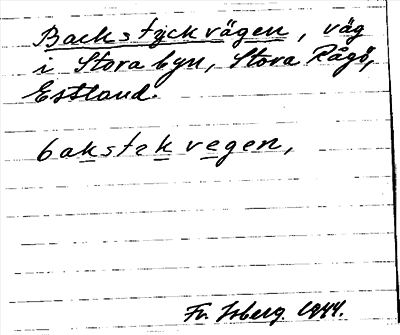 Backstyckvägen, väg
i Stora byn, Stora Rågö,
Estland.
bakstekvegen,
Fr. Isberg. 1944.